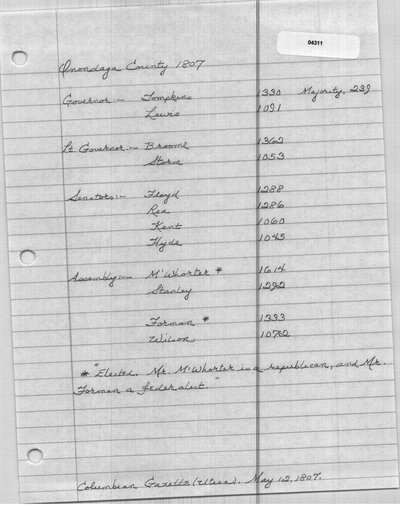 04311
Onondaga County 1807
Governor:- Tompkins 1330 Majority, 239
Lewis 1091
Lt. Governor:- Broome 1362
Storm 1053
Senators:- Floyd 1288
Rea 1286
Kent 1060
Hyde 1045
Assembly:- M'Whorter * 1614
Stanley 1292
Forman * 1333
Wilson 1072
* "Elected. Mr. M'Whorter is a republican, and Mr.
Forman a federalist."
Columbian Gazette (Utica). May 12, 1807.